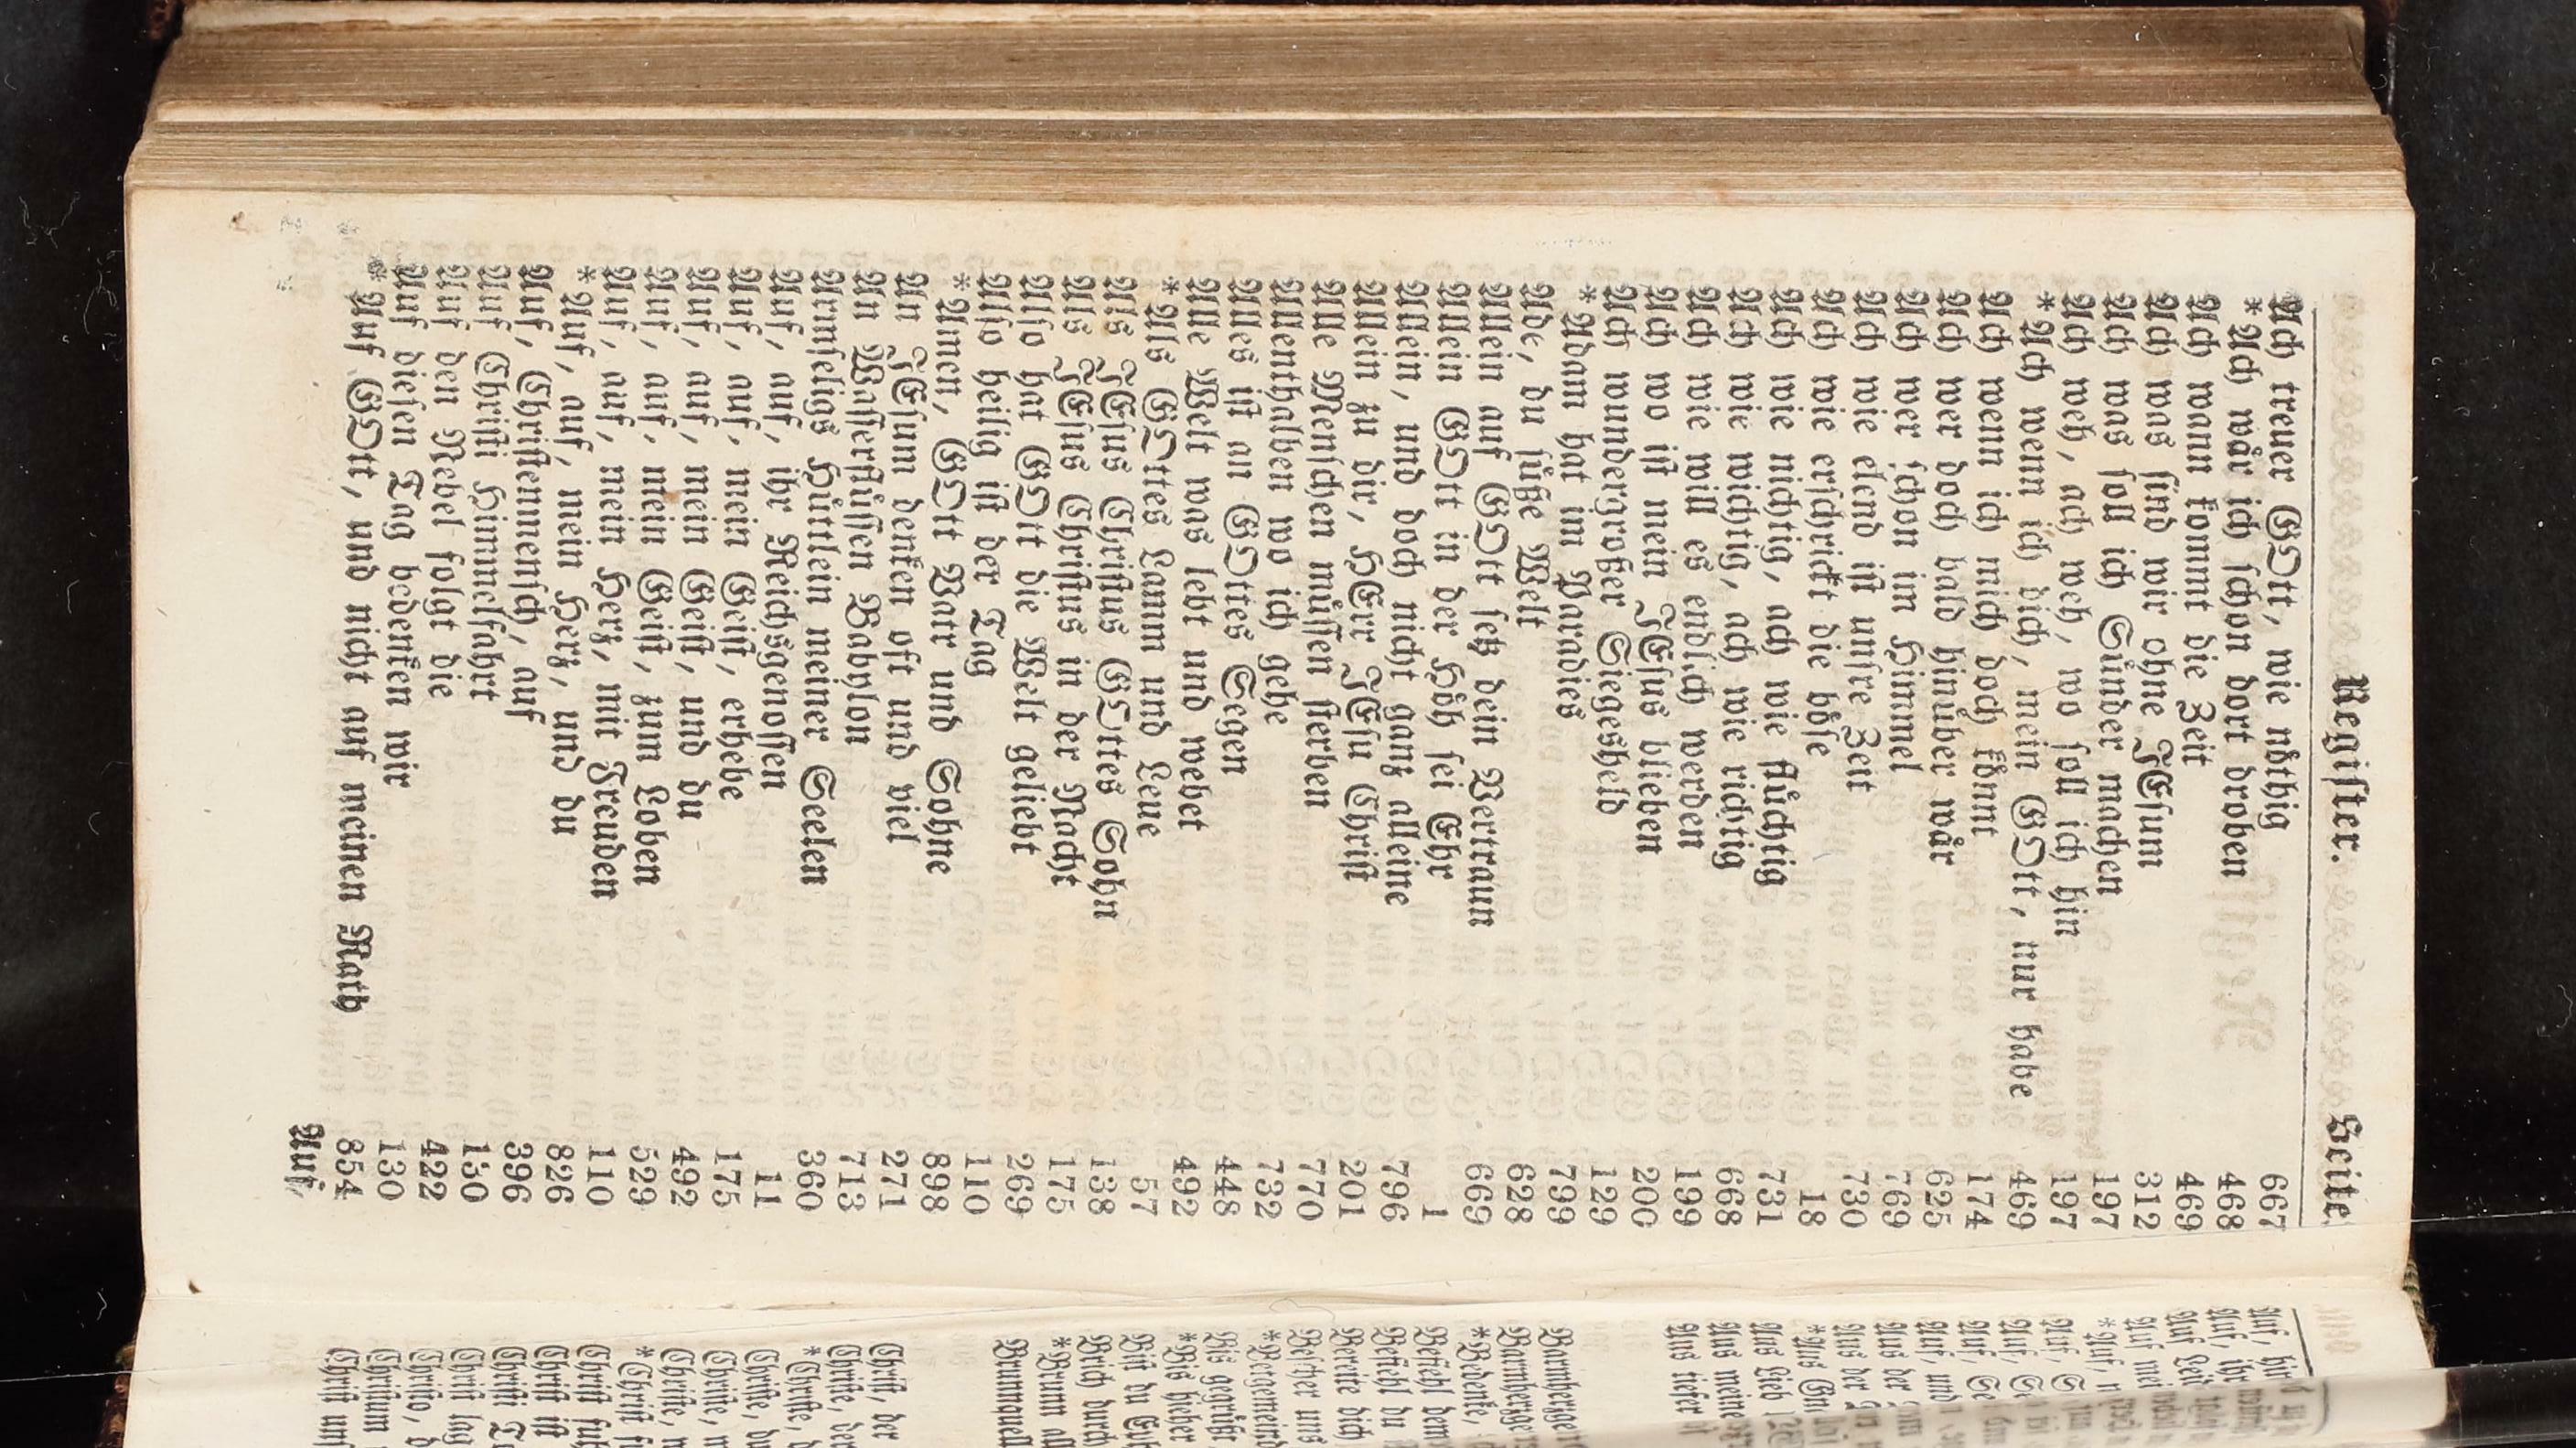 Register. Seite.
Ach treuer GOtt, wie nöthig 667
*Ach wär ich schon dort droben 468
Ach wann kommt die Zeit 469
Ach was sind wir ohne JEsum 312
Ach was soll ich Sünder machen 197
Ach weh, ach weh, wo soll ich hin 197
*Ach wenn ich dich, mein GOtt, nur habe 469
Ach wenn ich mich doch könnt 174
Ach wer doch bald hinüber wär 625
Ach wer schon im Himmel 769
Ach wie elend ist unsre Zeit 730
Ach wie erschrickt die böse 18
Ach wie nichtig, ach wie flüchtig 731
Ach wie wichtig, ach wie richtig 668
Ach wie will es endlich werden 199
Ach wo ist mein JEsus blieben 200
Ach wundergroßer Siegesheld 129
*Adam hat im Paradies 799
Ade, du süße Welt 628
Allein auf GOtt setz dein Vertraun 669
Allein GOtt in der Höh sei Ehr 1
Allein, und doch nicht ganz alleine 796
Allein zu dir, HErr JEsu Christ 201
Alle Menschen müssen sterben 770
Allenthalben wo ich gehe 732
Alles ist an GOttes Segen 448
Alle Welt was lebt und webet 492
*Als GOttes Lamm und Leue 57
Als JEsus Christus GOttes Sohn 138
Als JEsus Christus in der Nacht 175
Also hat GOtt die Welt geliebt 269
Also heilig ist der Tag 110
*Amen, GOtt Vatr und Sohne 898
An JEsum denken oft und viel 271
An Wasserflüssen Babylon 713
Armseligs Hüttlein meiner Seelen 360
Auf, auf, ihr Reichsgenossen 11
Auf, auf, mein Geist, erhebe 175
Auf, auf, mein Geist, und du 492
Auf, auf, mein Geist, zum Loben 529
Auf, auf, mein Herz, mit Freuden 110
*Auf, auf, mein Herz, und du 826
Auf, Christenmensch, auf 396
Auf Christi Himmelfahrt 130
Auf den Nebel folgt die 422
Auf diesen Tag bedenken wir 130
*Auf GOtt, und nicht auf meinen Rath 854
Auf,
Auf, ihr
Auf Leid
Auf mei
Auf, und
Aus der
Aus der
Aus meine
Aus tiefer
Barmherzge
Barmherzge
*Bedenke,
Befiehl dem
Befiehl du
Bereite dich
Bescher uns
*Betgemeind
Bis gegrüßt
*Bis hieher
Bist du
Brich durch
*Brunn all
Brunnquell
Christ, der
Christe, der
*Christe, d
Christe, du
Christe,
Christe,
*Christ
Christ
Christ ist
Christi
Christ lag
Christo, d
Christum
Christ uns